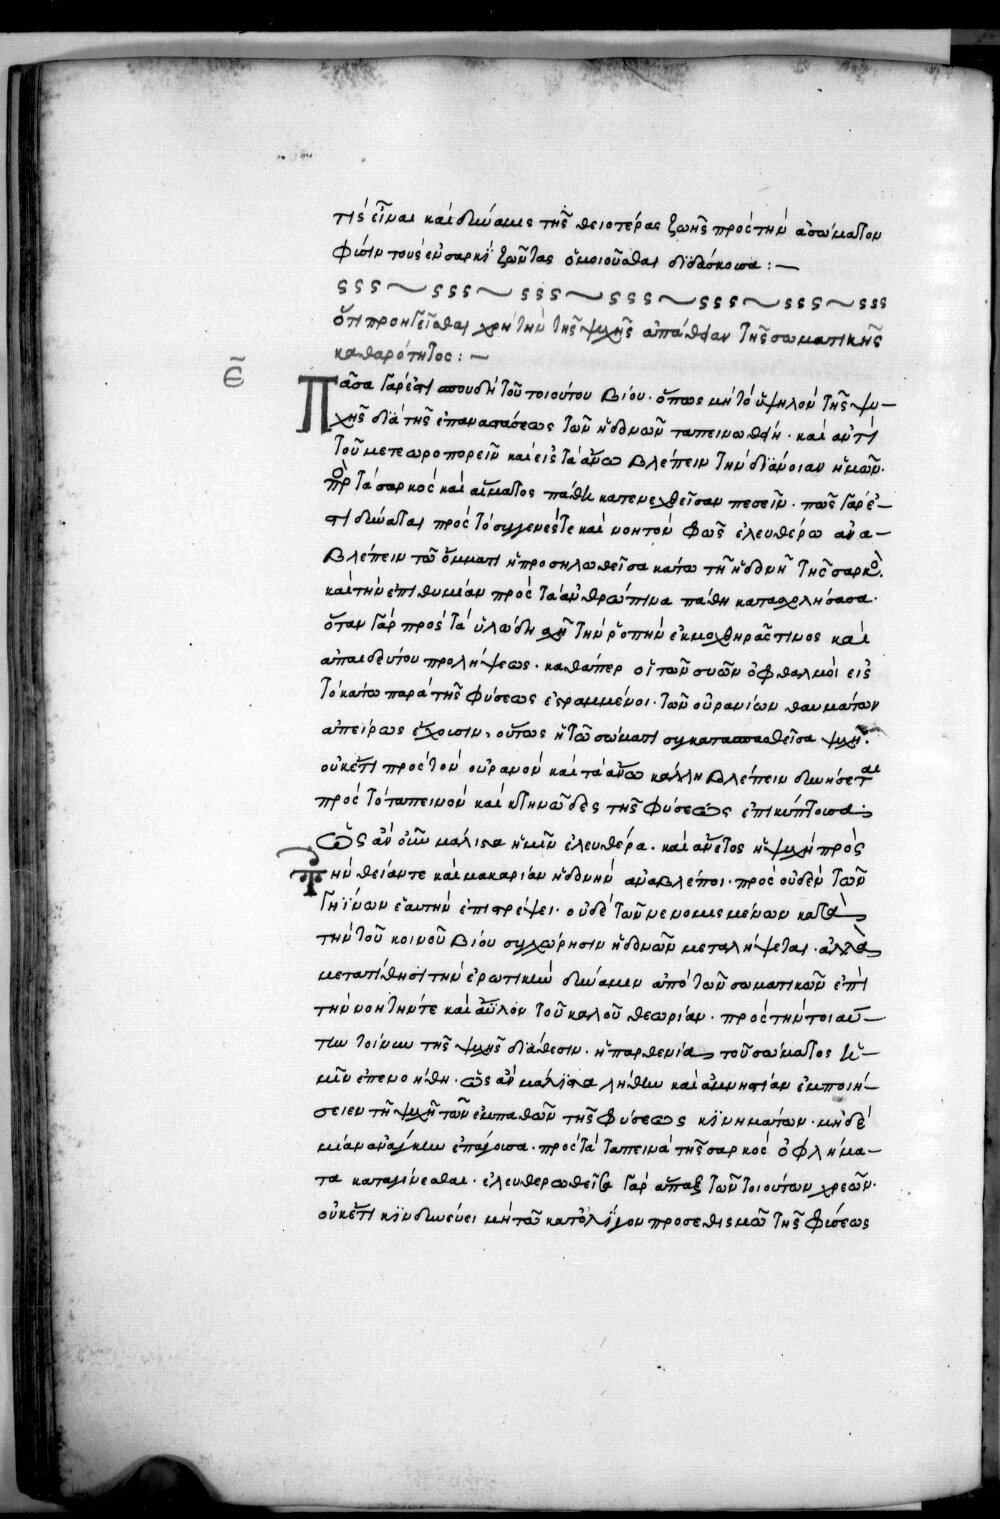 τις εἶναι καὶ δύναμις τῆς θειοτέρας ζωῆς πρὸς τὴν ἀσώματον
φύσιν τοὺς ἐν σαρκὶ ζῶντας ὁμοιοῦσθαι διδάσκουσα : —
ὅτι προηγεῖσθαι χρὴ τὴν τῆς ψυχῆς ἀπάθειαν τῆς σωματικῆς
καθαρότητος : —
ε
Πᾶσα γάρ ἐστι σπουδὴ τοῦ τοιούτου βίου· ὅπως μὴ τὸ ὑψηλὸν τῆς ψυ-
χῆς διὰ τῆς ἐπαναστάσεως τῶν ἡδονῶν ταπεινωθῇ· καὶ ἀντὶ
τοῦ μετεωροπορεῖν καὶ εἰς τὰ ἄνω βλέπειν τὴν διάνοιαν ἡμῶν·
πρὸς τὰ σαρκὸς καὶ αἵματος πάθη κατενεχθεῖσαν πεσεῖν· πῶς γὰρ ἔ-
τι δύναται πρὸς τὸ συγγενές τε καὶ νοητὸν φῶς ἐλευθέρω ἀνα-
βλέπειν τῶ ὄμματι ἡ προσηλωθεῖσα κάτω τῆ ἡδονῆ τῆς σαρκὸς·
καὶ τὴν ἐπιθυμίαν πρὸς τὰ ἀνθρώπινα πάθη κατασχολήσασα·
ὅταν γὰρ πρὸς τὰ ὑλώδη σχῆ τὴν ῥοπὴν ἐκ μοχθηρᾶς τινος καὶ
ἀπαιδεύτου προλήψεως· καθάπερ οἱ τῶν συῶν ὀφθαλμοὶ εἰς
τὸ κάτω παρὰ τῆς φύσεως ἐστραμμένοι· τῶν οὐρανίων θαυμάτων
ἀπείρως ἔχουσιν, οὕτως ἡ τῶ σώματι συγκατασπασθεῖσα ψυχὴ·
οὐκέτι πρὸς τὸν οὐρανὸν καὶ τὰ ἄνω κάλλη βλέπειν δυνήσεται
πρὸς τὸ ταπεινὸν καὶ κτηνῶδες τῆς φύσεως ἐπικύπτουσα·
ὡς ἂν οὖν μάλιστα ἡμῖν ἐλευθέρα· καὶ ἄνετος ἡ ψυχὴ πρὸς
τὴν θείαν τε καὶ μακαρίαν ἡδονὴν ἀναβλέποι· πρὸς οὐδὲν τῶν
γηΐνων ἑαυτὴν ἐπιστρέψει· οὐδὲ τῶν νενομισμένων κατὰ
τὴν τοῦ κοινοῦ βίου συγχώρησιν ἡδονῶν μεταλήψεται· ἀλλὰ
μεταπιθήσει τὴν ἐρωτικὴν δύναμιν ἀπὸ τῶν σωματικῶν ἐπὶ
τὴν νοητήν τε καὶ ἄϋλον τοῦ καλοῦ θεωρίαν· πρὸς τὴν τοιαύ-
την τοίνυν τῆς ψυχῆς διάθεσιν· ἡ παρθενία τοῦ σώματος ἡ-
μῖν ἐπενοήθη· ὡς ἂν μάλιστα λήθην καὶ ἀμνηστίαν ἐμποιή-
σειεν τῆ ψυχῆ τῶν ἐμπαθῶν τῆς φύσεως κινημάτων· μηδε
μίαν ἀνάγκην ἐπάγουσα· πρὸς τὰ ταπεινὰ τῆς σαρκὸς ὀφλήμα-
τα καταγίνεσθαι· ἐλευθερωθεῖσα γὰρ ἅπαξ τῶν τοιούτων χρεῶν·
οὐκέτι κινδυνεύει μὴ τῶ κατ' ὀλίγον προσεθισμῶ τῆς φύσεως